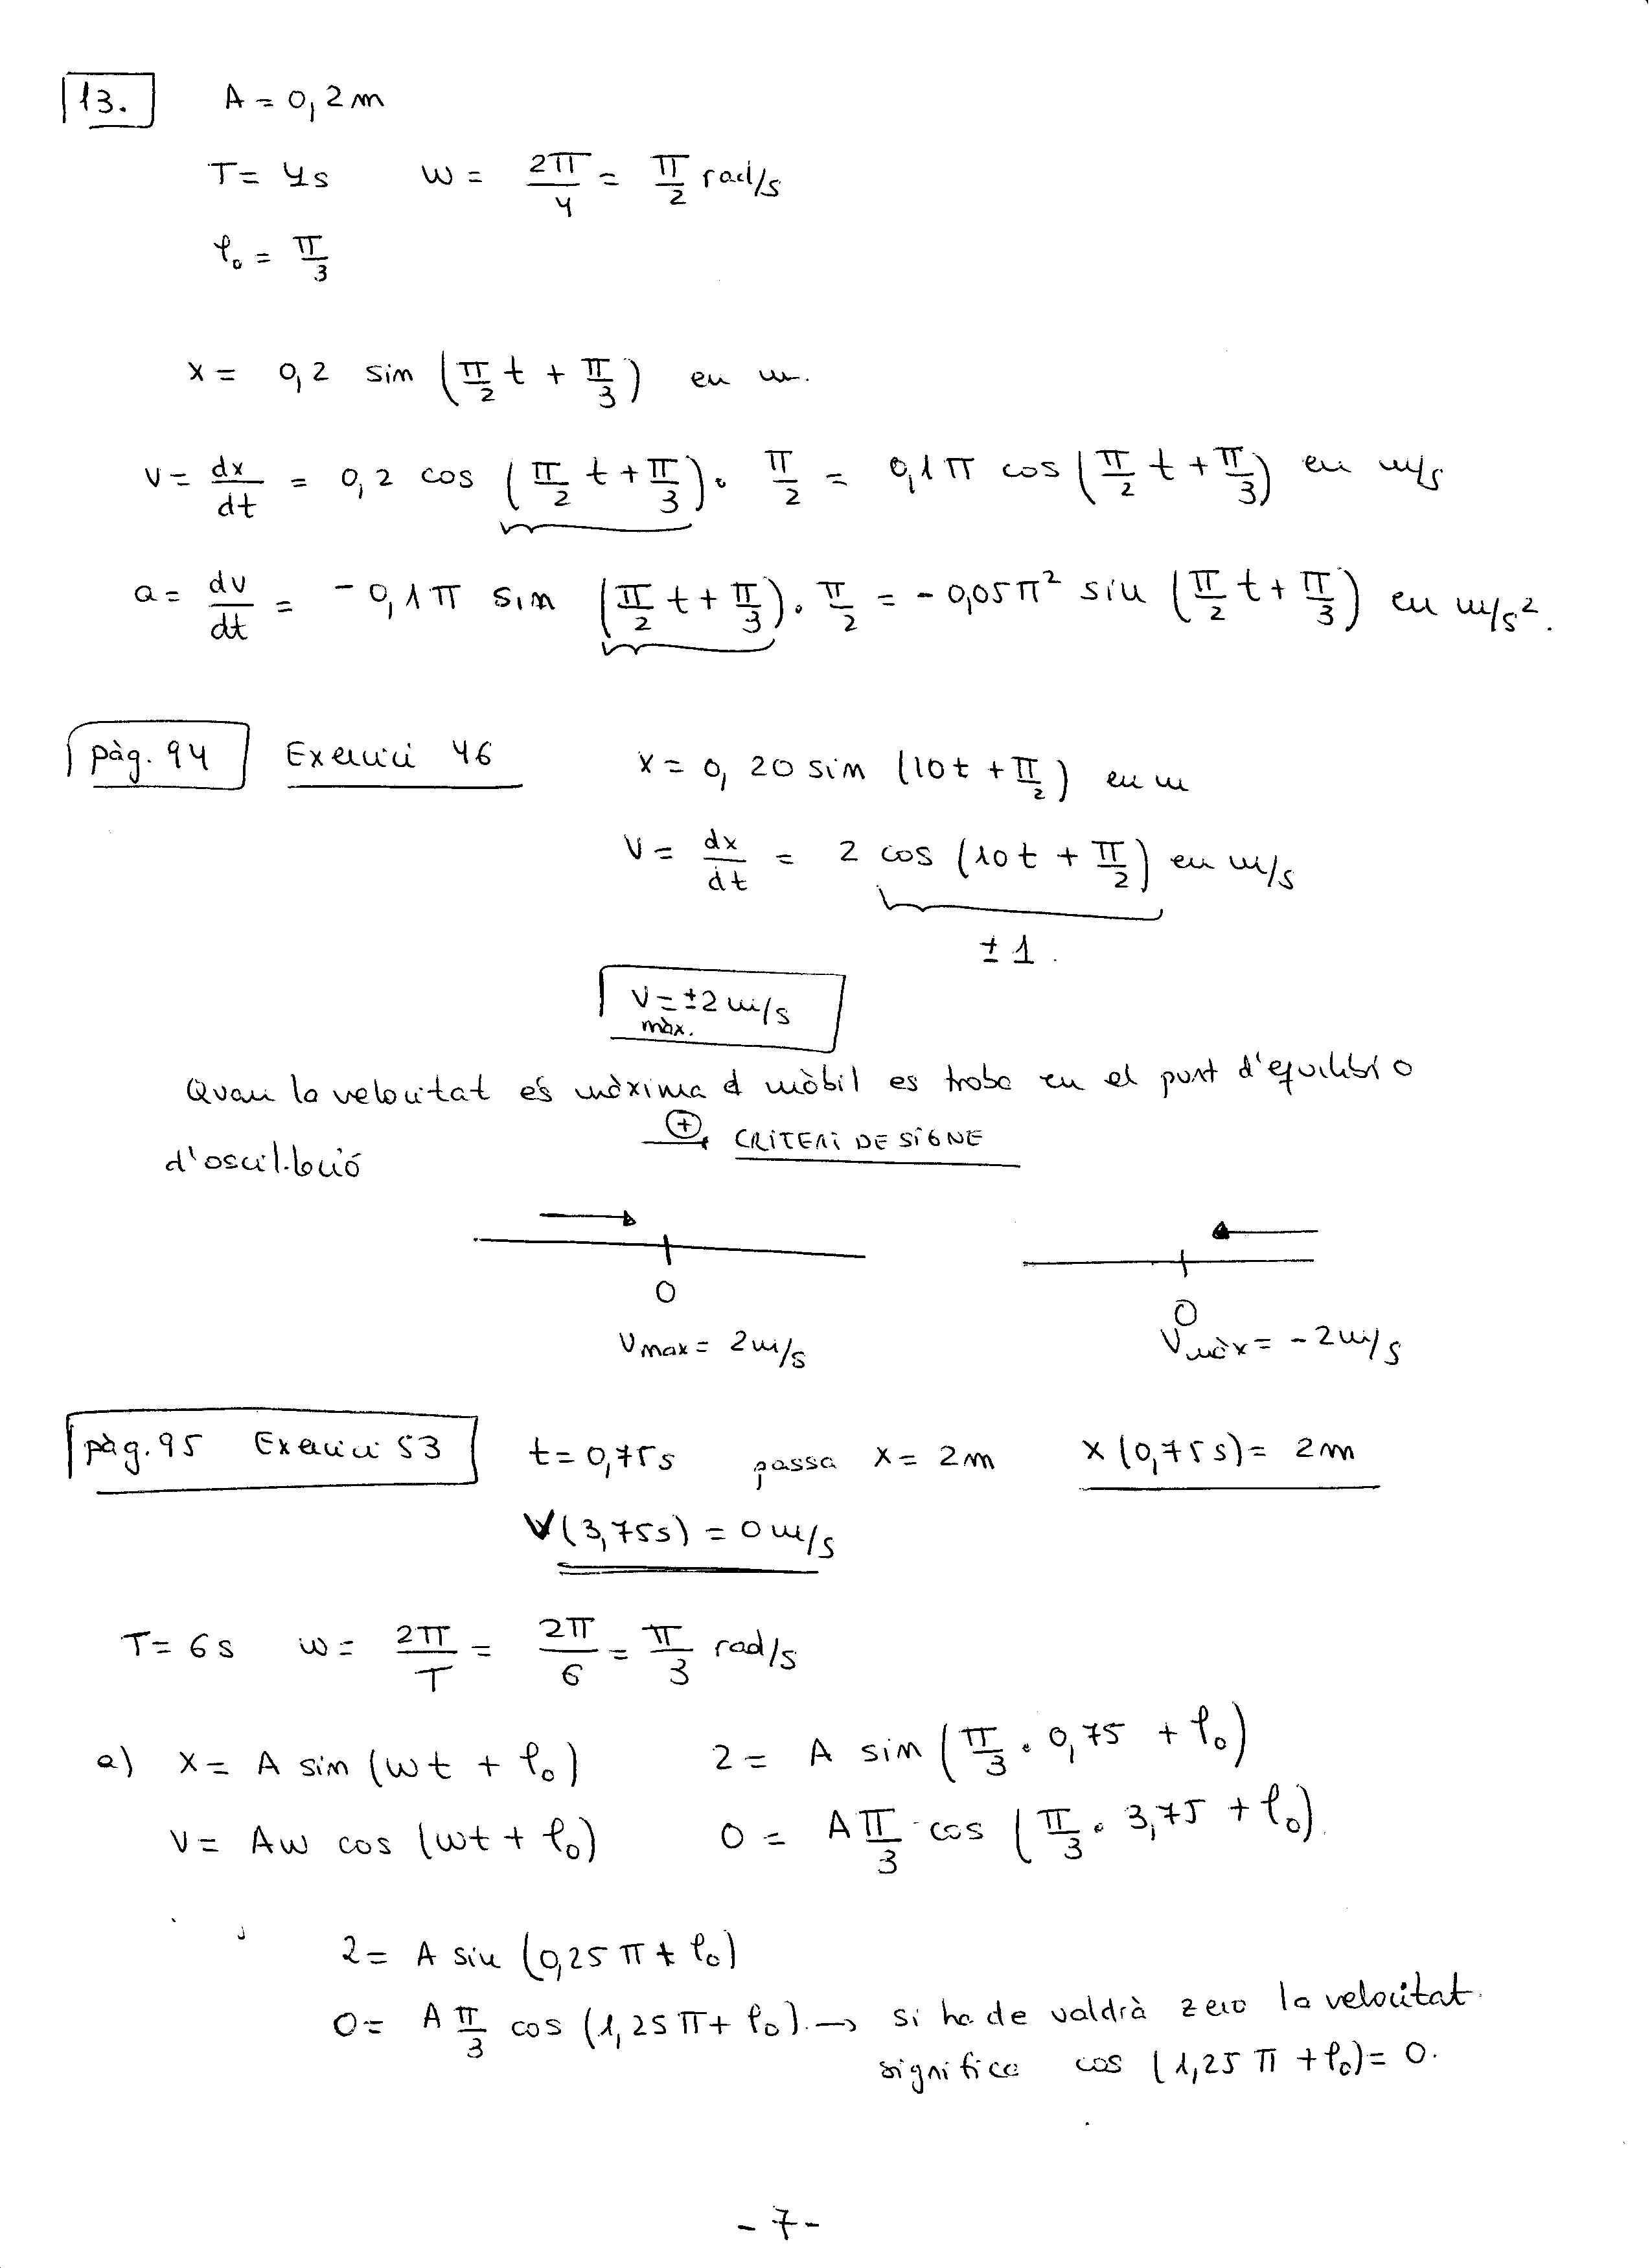 13. A = 0,2 m
T = 4s ω = 2π/4 = π/2 rad/s
φ₀ = π/3
x = 0,2 sin (π/2 t + π/3) en m.
v = dx/dt = 0,2 cos (π/2 t + π/3) · π/2 = 0,1π cos (π/2 t + π/3) en m/s
a = dv/dt = -0,1π sin (π/2 t + π/3) · π/2 = -0,05π² sin (π/2 t + π/3) en m/s².
pàg. 94 Exercici 46 x = 0,20 sin (10t + π/2) en m
v = dx/dt = 2 cos (10t + π/2) en m/s
± 1.
v màx. = ±2 m/s
Quan la velocitat és màxima el mòbil es troba en el punt d'equilibri o
⊕ CRITERI DE SIGNE
d'oscil·lació
0
0
vmax = 2 m/s
vmàx = -2 m/s
pàg. 95 Exercici 53 t = 0,75 s passa x = 2 m x (0,75 s) = 2 m
v (3,75 s) = 0 m/s
T = 6 s ω = 2π/T = 2π/6 = π/3 rad/s
a) x = A sin (ωt + φ₀) 2 = A sin (π/3 · 0,75 + φ₀)
v = Aω cos (ωt + φ₀) 0 = A π/3 cos (π/3 · 3,75 + φ₀).
2 = A sin (0,25 π + φ₀)
0 = A π/3 cos (1,25 π + φ₀). → si ha de valdrà zero la velocitat.
significa cos (1,25 π + φ₀) = 0.
- 7 -